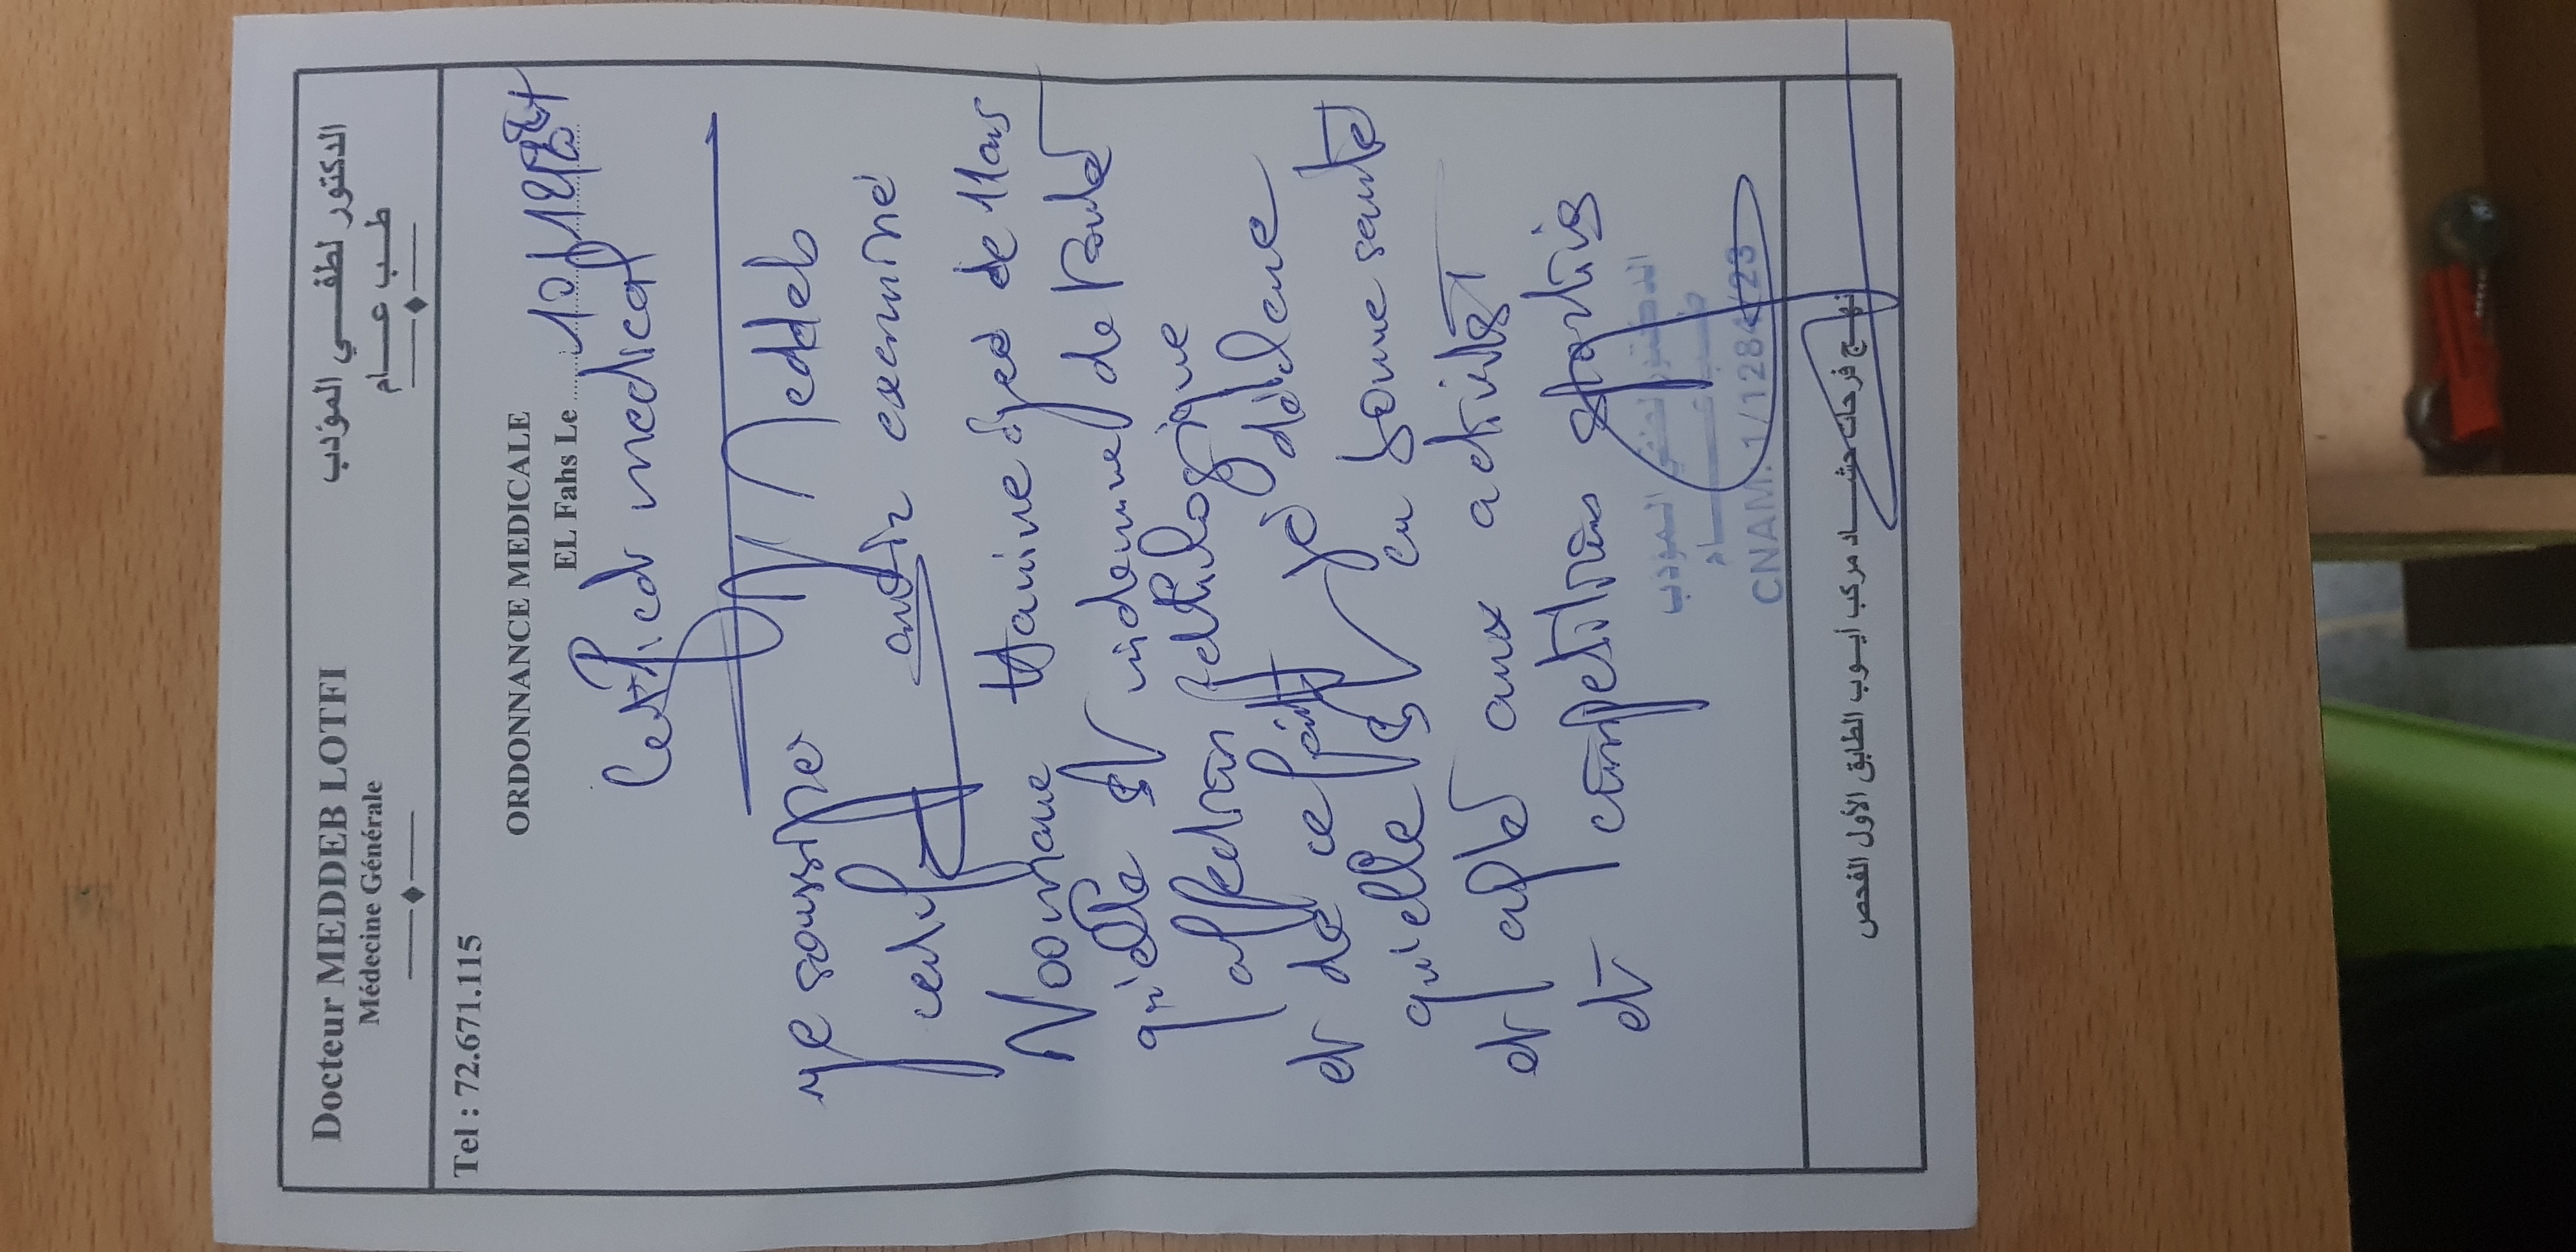 Docteur MEDDEB LOTFI
Médecine Générale
الدكتور لطفــــي المؤدب
طـــب عـــام
Tel : 72.671.115
ORDONNANCE MEDICALE
EL Fahs Le
Certificat medical
je soussigné Dr Meddeb
certifie avoir examiné
Nourhane agée de 11 ans
qu'elle est indemne de toute
affection pathologique
et de ce fait je déclare
qu'elle est en bonne santé
et apte aux activités
et compétitions sportives
الدكتور لطفي المؤدب
طـــب عـــام
CNAM: 1/1284 /23
نهـج فرحات حشـــاد مركب أيـوب الطابق الأول الفحص